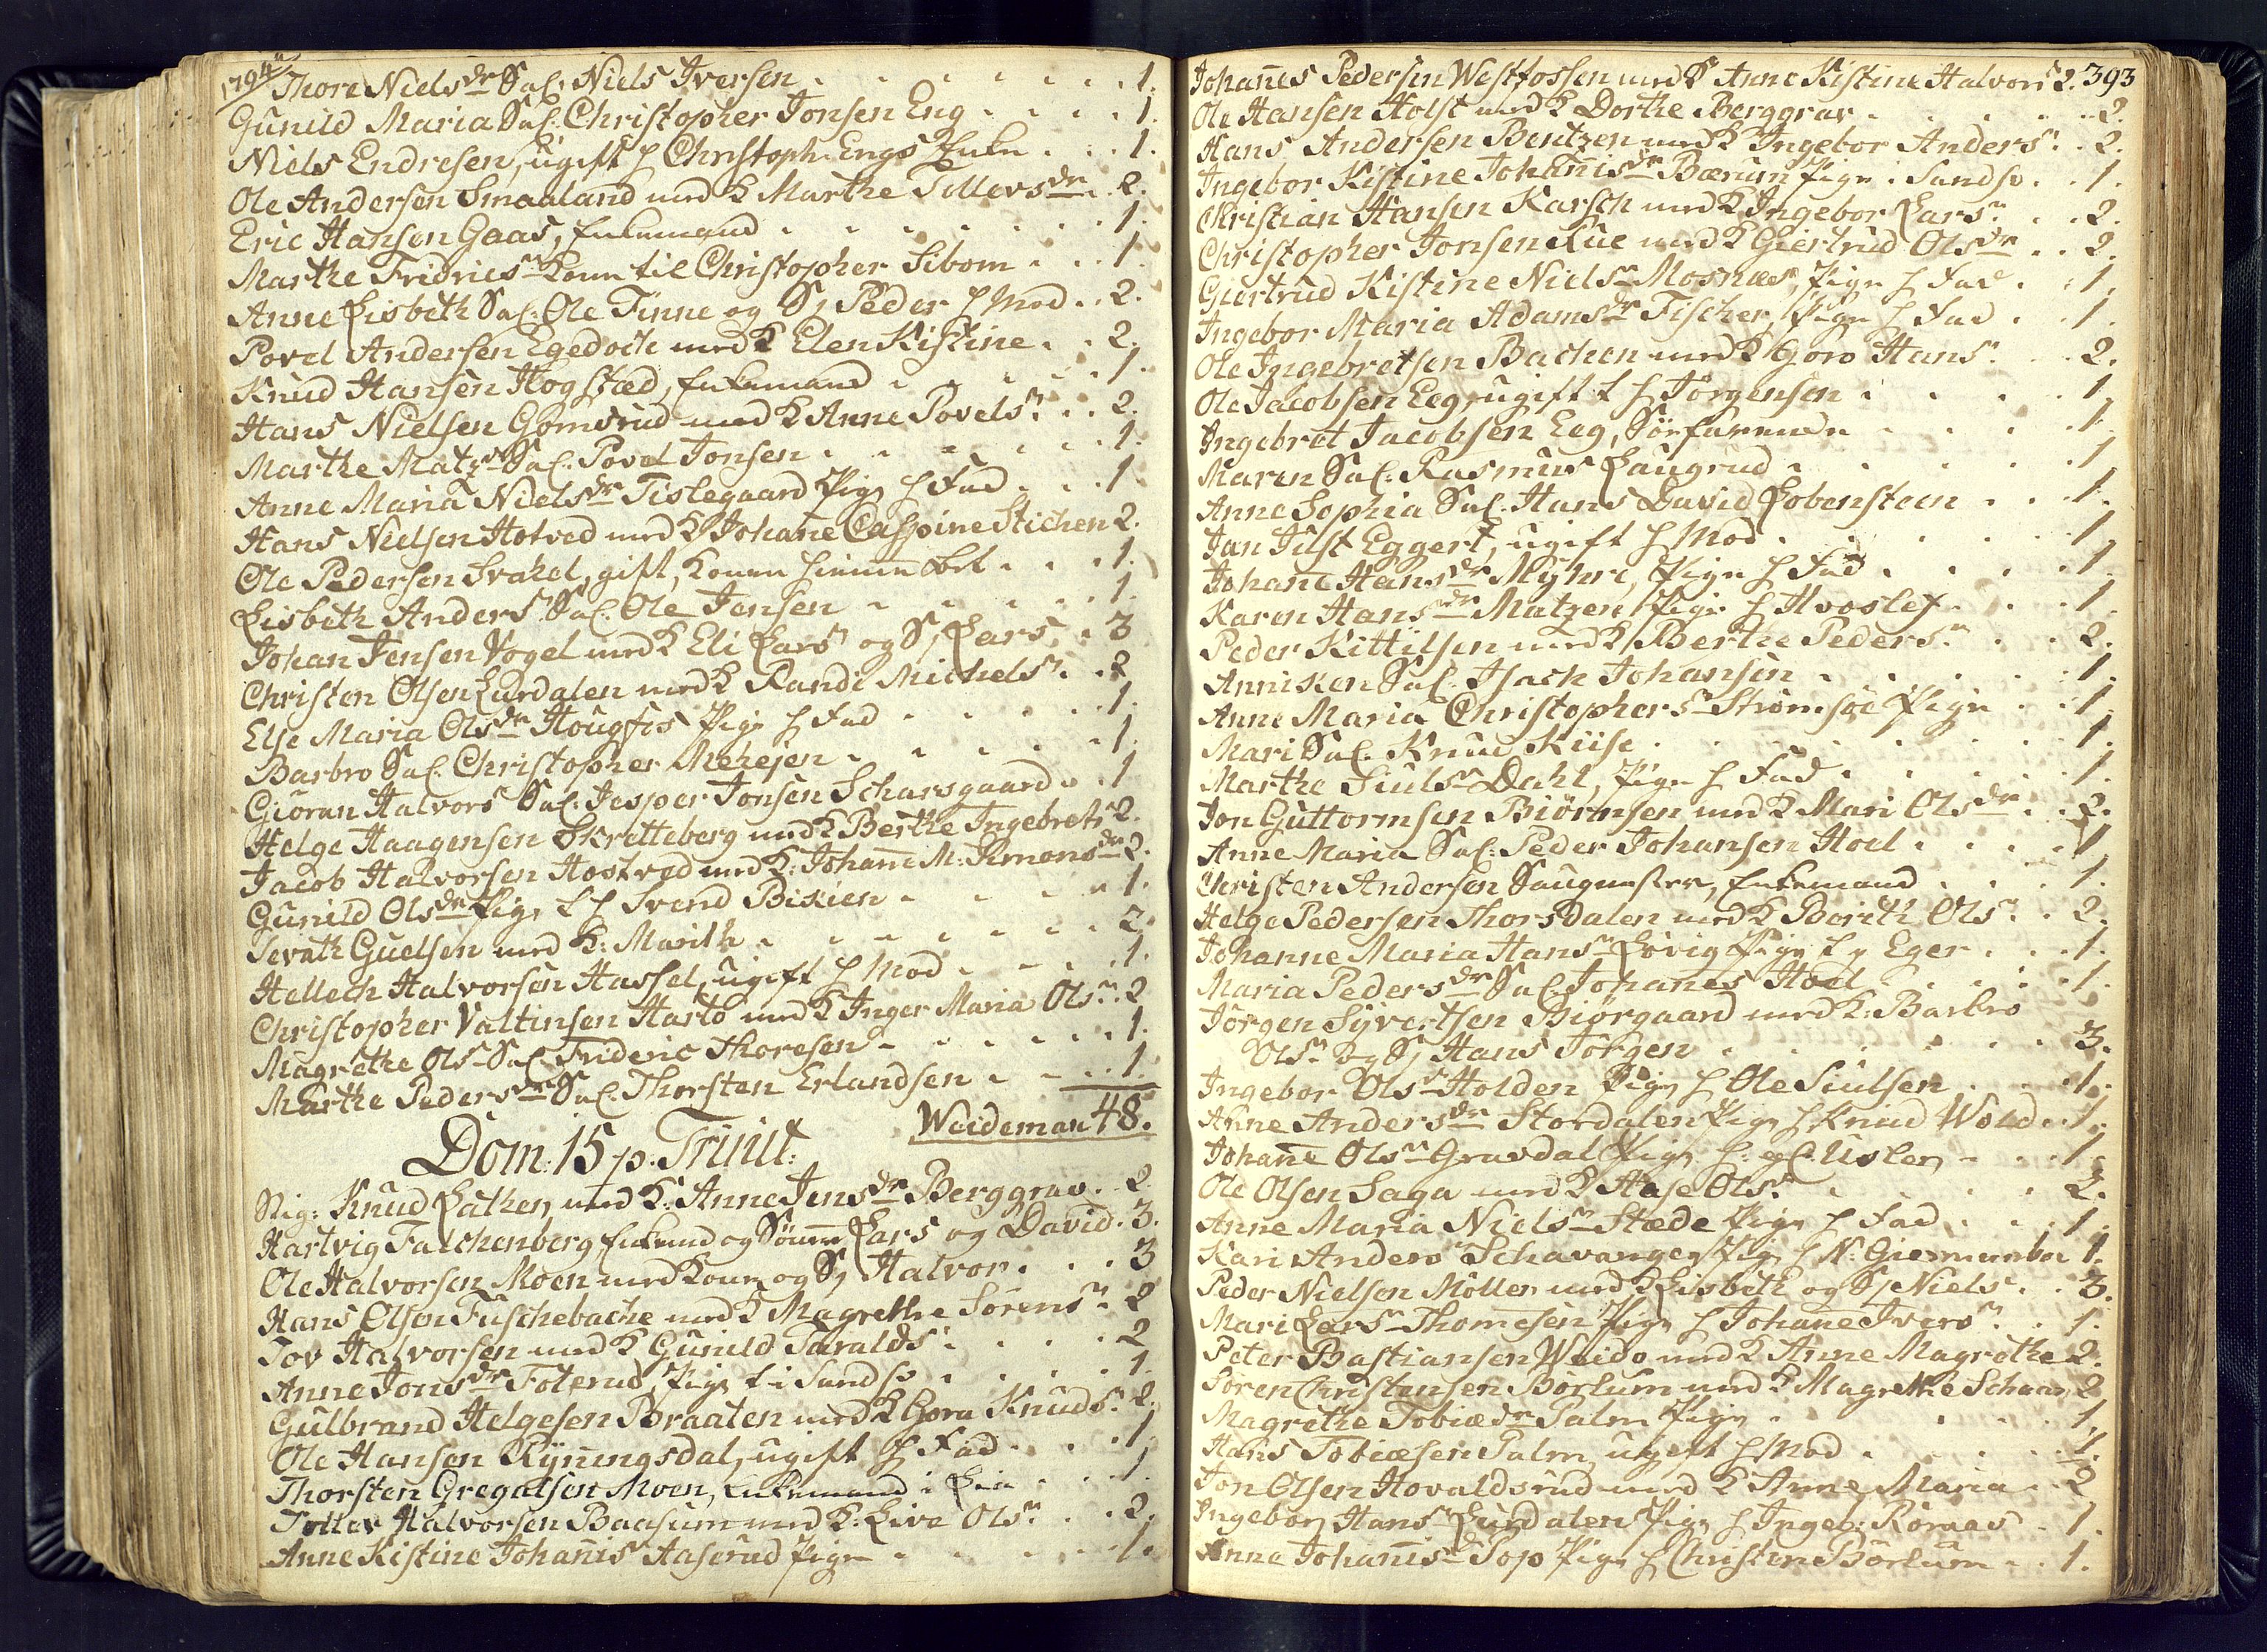 1794
Thore Nielsdr Sal. Niels Iversen . . . 1.
Gunild Maria Sal. Christopher Jonsen Eng . . . 1.
Niels Endresen, ugift h Christoph. Engs Enke . . . 1.
Ole Andersen Smaaland med K Marthe Tollevsdr . 2.
Eric Hansen Gaas, Enkemand . . . 1.
Marthe Fridricsn Kone til Christopher Sibom . . . 1.
Anne Lisbeth Sal. Ole Finne og S. Peder h Mod . . 2.
Povel Andersen Egedock med K Elen Kistine . . 2.
Knud Hansen Hogstæd, Enkemand . . . 1.
Hans Nielsen Gomsrud med K Anne Povelsn . . 2.
Marthe Matzn Sal. Povel Jonsen . . . 1.
Anne Maria Nielsdr Tislegaard Pige h Fad . . . 1
Hans Nielsen Hotved med K Johane Cathrine Stichen 2.
Ole Pedersen Svakel, gift, Konen . . . 1.
Lisbeth Andersn Sal. Ole Jensen . . . 1.
Johan Jensen Vogel med K Eli Larsn og S. Lars . . 3
Christen Olsen Lurdalen med K Randi Michelsn . . 2
Else Maria Olsdr Hougfos Pige h Fad . . . 1.
Barbro Sal. Christopher Mehejen . . . 1.
Giöran Halvorsn Sal. Jesper Jonsen Scharsgaard . . 1
Helge Haagensen Skretteberg med K Berthe Ingebretsn 2.
Jacob Halvorsen Hostved med K: Johane M: Simonsdr 2.
Gunild Olsdr Pige t h Svend Bikien . . . 1.
Sevath Guelsen med K: Marith . . . 2.
Hellech Halvorsen Hassel, ugift h Mod . . . 1.
Christopher Valtinsen Harlo med K Inger Maria Olsn 2
Magrethe Olsn Sal. Frideric Thoresen . . . 1.
Marthe Pedersdr Sal. Thorsten Erlandsen . . . 1.
Weideman 48.
Dom: 15 p. Trinit:
Sig: Knud Lathen med K: Anne Jensdr Berggrav . . 2.
Hartvig Falchenberg Enkemd og Sönner Lars og David . 3.
Ole Halvorsen Moen med Kone og S. Halvor . . . 3
Hans Olsen Fuschebache med K Magrethe Sörensn . 2
Tov Halvorsen med K Gunild Taraldsn . . . 2
Anne Jonsdr Foterud Pige t i Sandsv . . . 1.
Gulbrand Helgesen Braaten med K Goru Knudsn . 2.
Ole Hansen Ryningsdal, ugift h Fad . . . 1.
Thorsten Gregalsen Moen, Enkemand i Lia . . . 1.
Tollev Halvorsen Baasum med K: Live Olsn . . . 2.
Anne Kistine Johanisn Aaserud Pige . . . 1.
Johanes Pedersen Westfossen med K Anne Kistine Halvorsn 2. 393
Ole Hansen Holst med K Dorthe Berggrav . . . 2.
Hans Andersen Bentzen med K Ingebor Andersn . . 2.
Ingebor Kistine Johanisdr Bærum Pige i Sandsv . . . 1.
Christian Hansen Karsch med K Ingebor Larsn . . . 2.
Christopher Jonsen Lue med K Giertrud Olsdr . . 2.
Giertrud Kistine Nielsn Mosnæs, Pige h Fad . . . 1.
Ingebor Maria Adamsdr Fischer, Pige h Fad . . . 1.
Ole Ingebretsen Bachen med K Goro Hansn . . 2.
Ole Jacobsen Eeg, ugift t h Jörgensen . . . 1.
Ingebret Jacobsen Eeg, Söefarende . . . 1.
Maren Sal. Rasmus Laugrud . . . 1
Anne Sophia Sal. Hans David Lobenstein . . . 1.
Jan Just Eggert, ugift h Mod . . . 1
Johane Hansdr Myhre, Pige h Fad . . . 1.
Karen Hansdr Matzen Pige h Hvoslef . . . 1.
Peder Kittilsen med K Berthe Pedersn . . . 2.
Anniken Sal. Isach Johansen . . . 1.
Anne Maria Christophersn Strömsöe Pige . . . 1.
Mari Sal. Knud Kiise . . . 1.
Marthe Siulsn Dahl, Pige h Fad . . . 1.
Jon Guttormsen Biörnsen med K Mari Olsdr . . 2.
Anne Maria Sal. Peder Johansen Hoel . . . 1
Christen Andersen Saugmester, Enkemand . . . 1.
Helge Pedersen Thorsdalen med K Borith Olsn . . 2.
Johanne Maria Hansn Lövig Pige t p Eger . . . 1.
Maria Pedersdr Sal. Johanes Hoel . . . 1.
Jörgen Syvertsen Biörgaard med K: Barbro
Olsn og S. Hans Jörgen . . . 3.
Ingebor Olsn Holden Pige h Ole Siulsen . . . 1.
Anne Andersdr Stordalen Pige h Knud Wold . . 1.
Johane Olsn Gravdal Pige h: gl. Uslen . . . 1.
Ole Olsen Saga med K Aase Olsn . . . 2.
Anne Maria Nielsn Stæde Pige h Fad . . . 1.
Kari Andersn Schavanger Pige h N: . . . 1.
Peder Nielsen Möller med K Lisbeth og S. Niels . . 3.
Mari Larsn Thomesen Pige h Johane Iversn . . 1.
Peter Bastiansen Weido med K Anne Magrethe 2.
Sören Christensen Börlum med K Magrethe Schaar 2
Magrethe Tobiædr Palm Pige . . . 1.
Hans Tobiæsen Palm, ugift h Mod . . . 1.
Jon Olsen Hovaldsrud med K Anne Maria . . 2
Ingebor Hansn Lurdalen Pige h Ingeb: Römes . 1.
Anne Johanisn Top Pige h Christen Börlum . . 1.